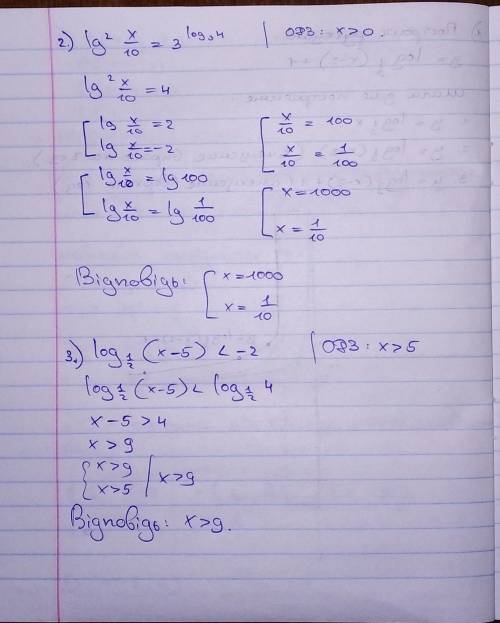 2.) lg² x/10 = 3^log₃4 | ОДЗ: x>0.
lg² x/10 = 4
[ lg x/10 = 2
lg x/10 = -2
[ lg x/10 = lg 100
lg x/10 = lg 1/100
[ x/10 = 100
x/10 = 1/100
[ x=1000
x = 1/10
Відповідь: [ x=1000
x = 1/10
3.) log₁/₂ (x-5) < -2 | ОДЗ: x>5
log₁/₂ (x-5) < log₁/₂ 4
x - 5 > 4
x > 9
{ x>9
x>5 | x>9
Відповідь: x>9.